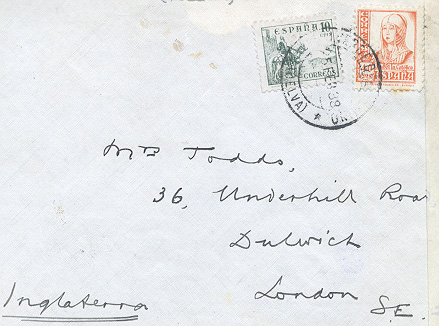 ESPAÑA 10
CTS
CORREOS
ESPAÑA
FEB 38
(HUELVA)
Mrs Todds,
36, Underhill Road
Dulwich
London
S.E.
Inglaterra